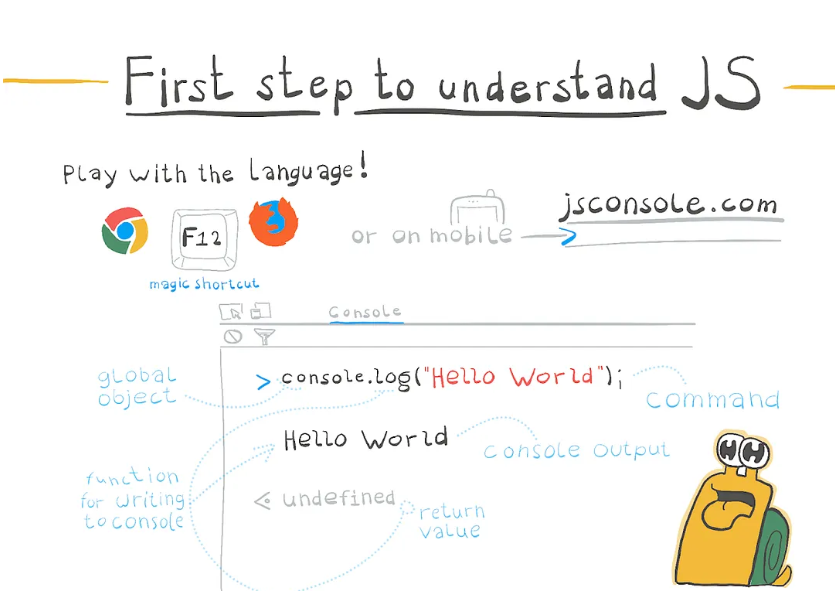 First step to understand JS
Play with the Language!
F12
magic shortcut
or on mobile
jsconsole.com
>
Console
global
object
> console.log("Hello World");
command
Hello World
console output
function
for writing
to console
< undefined
return
value